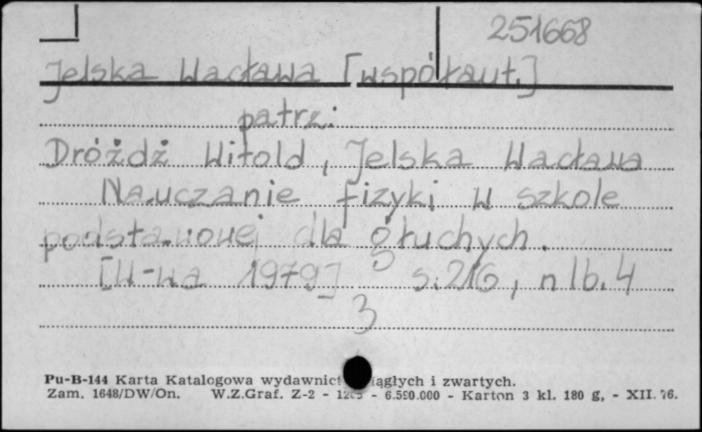 251668
Jelska Wacława [współaut.]
patrz:
Dróżdż Witold, Jelska Wacława
Nauczanie fizyki w szkole
podstawowej dla głuchych.
[W-wa 1979] s. 216, nlb. 4
3
Pu-B-144 Karta Katalogowa wydawnict ciągłych i zwartych.
Zam. 1648/DW/On. W.Z.Graf. Z-2 - - 6.590.000 - Karton 3 kl. 180 g, - XII. 76.